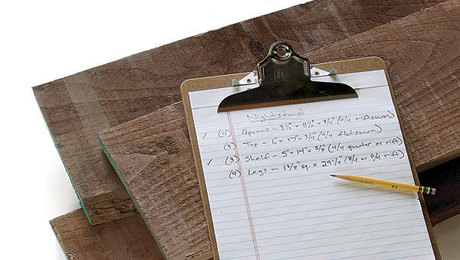 Nightstand
Aprons - 3 1/2 x 11 1/2 x 3/4 (4/4 riftsawn)
(3) Top - 6 x 19 x 3/4 (4/4 flatsawn)
✓ (3) Shelf - 5" x 14" x 3/4 (4/4 quarter or rift)
(4) Legs - 1 3/8" sq. x 29 1/4 (8/4 rift)